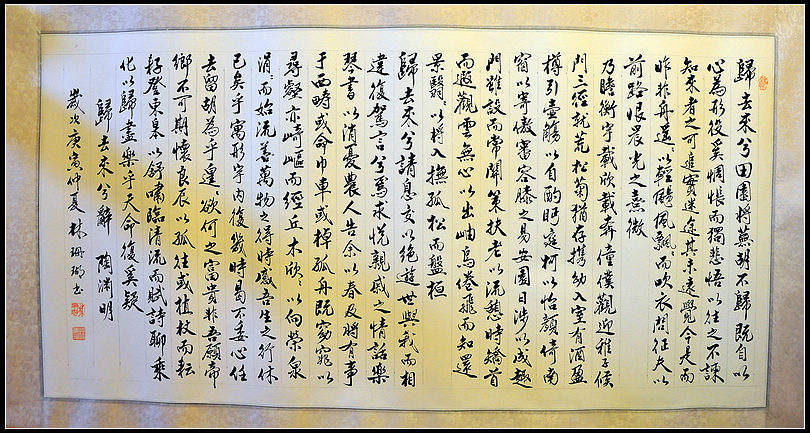 歸去來兮田園將蕪胡不歸既自以
心為形役奚惆悵而獨悲悟以往之不諫
知來者之可追實迷途其未遠覺今是而
昨非舟遙〻以輕颺風飄〻而吹衣問征夫以
前路恨晨光之熹微
乃瞻衡宇載欣載奔僮僕歡迎稚子候
門三徑就荒松菊猶存携幼入室有酒盈
樽引壺觴以自酌眄庭柯以怡顏倚南
窗以寄傲審容膝之易安園日涉以成趣
門雖設而常關策扶老以流憩時矯首
而遐觀雲無心以出岫鳥倦飛而知還
景翳〻以將入撫孤松而盤桓
歸去來兮請息交以絕遊世與我而相
違復駕言兮焉求悅親戚之情話樂
琴書以消憂農人告余以春及將有事
于西疇或命巾車或棹孤舟既窈窕以
尋壑亦崎嶇而經丘木欣〻以向榮泉
涓〻而始流善萬物之得時感吾生之行休
已矣乎寓形宇內復幾時曷不委心任
去留胡為乎遑〻欲何之富貴非吾願帝
鄉不可期懷良辰以孤往或植杖而耘
耔登東皋以舒嘯臨清流而賦詩聊乘
化以歸盡樂乎天命復奚疑
歸去來兮辭 陶淵明
歲次庚寅仲夏 林珊